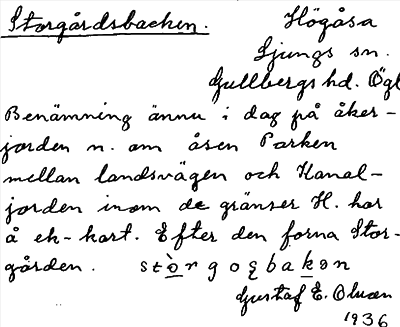 Storgårdsbacken. Högåsa
Ljungs sn.
Gullbergs hd. Ögl
Benämning ännu i dag på åker-
jorden n. om åsen Parken
mellan landsvägen och Kanal-
jorden inom de gränser H. har
å ek-kart. Efter den forna Stor-
gården. stòrgogbakən
Gustaf E. Olsson
1936